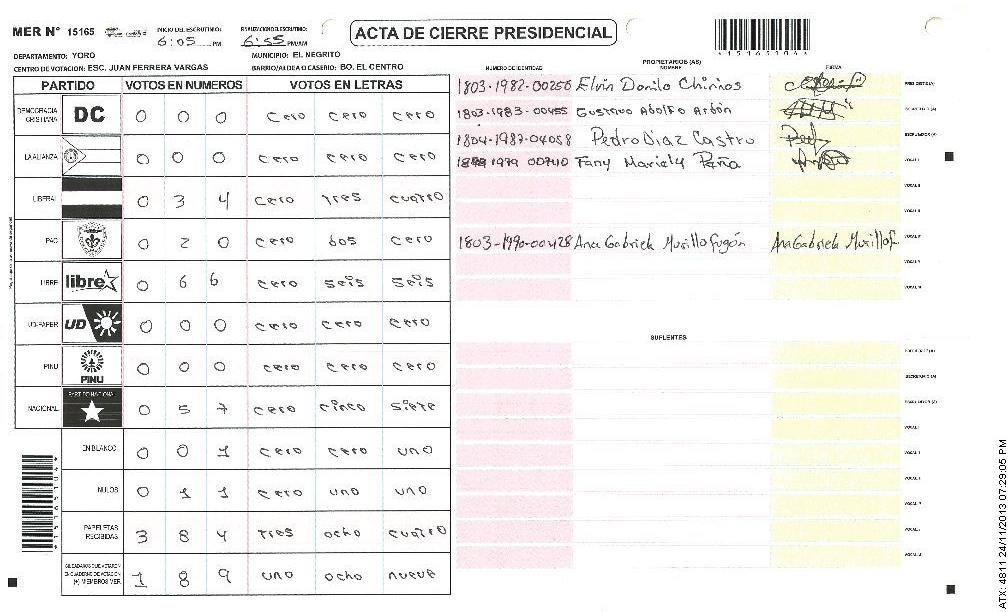 MER Nº 15165
INICIO DEL ESCRUTINIO: 6:05 PM
FINALIZACION DEL ESCRUTINIO: 6:55 PM/AM
ACTA DE CIERRE PRESIDENCIAL
DEPARTAMENTO: YORO
MUNICIPIO: EL NEGRITO
CENTRO DE VOTACION: ESC. JUAN FERRERA VARGAS
BARRIO/ALDEA O CASERIO: BO. EL CENTRO
PARTIDO VOTOS EN NUMEROS VOTOS EN LETRAS
DEMOCRACIA CRISTIANA DC 0 0 0 cero cero cero
LA ALIANZA 0 0 0 cero cero cero
LIBERAL 0 3 4 cero tres cuatro
PAC 0 2 0 cero dos cero
LIBRE libre 0 6 6 cero seis seis
UD-FAPER UD 0 0 0 cero cero cero
PINU PINU 0 0 0 cero cero cero
NACIONAL PARTIDO NACIONAL 0 5 7 cero cinco siete
EN BLANCO 0 0 1 cero cero uno
NULOS 0 1 1 cero uno uno
PAPELETAS RECIBIDAS 3 8 4 tres ocho cuatro
CIUDADANOS QUE VOTARON EN CUADERNO DE VOTACION (+) MIEMBROS MER 1 8 9 uno ocho nueve
PROPIETARIOS (AS)
NUMERO DE IDENTIDAD NOMBRE FIRMA
1803-1982-00250 Elvin Danilo Chirinos PRESIDENTE(A)
1803-1983-00455 Gustavo Adolfo Ardón SECRETARIO (A)
1804-1987-04058 Pedro Diaz Castro ESCRUTADOR (A)
1979 00740 Fany Mariely Peña VOCAL I
VOCAL II
VOCAL III
1803-1990-00428 Ana Gabriela Murillo Fugón Ana Gabriela Murillo F. VOCAL IV
VOCAL V
VOCAL VI
SUPLENTES
PRESIDENTE (A)
SECRETARIO (A)
ESCRUTADOR (A)
VOCAL I
VOCAL II
VOCAL III
VOCAL IV
VOCAL V
VOCAL VI
ATX: 4811 24/11/2013 07:29:05 PM